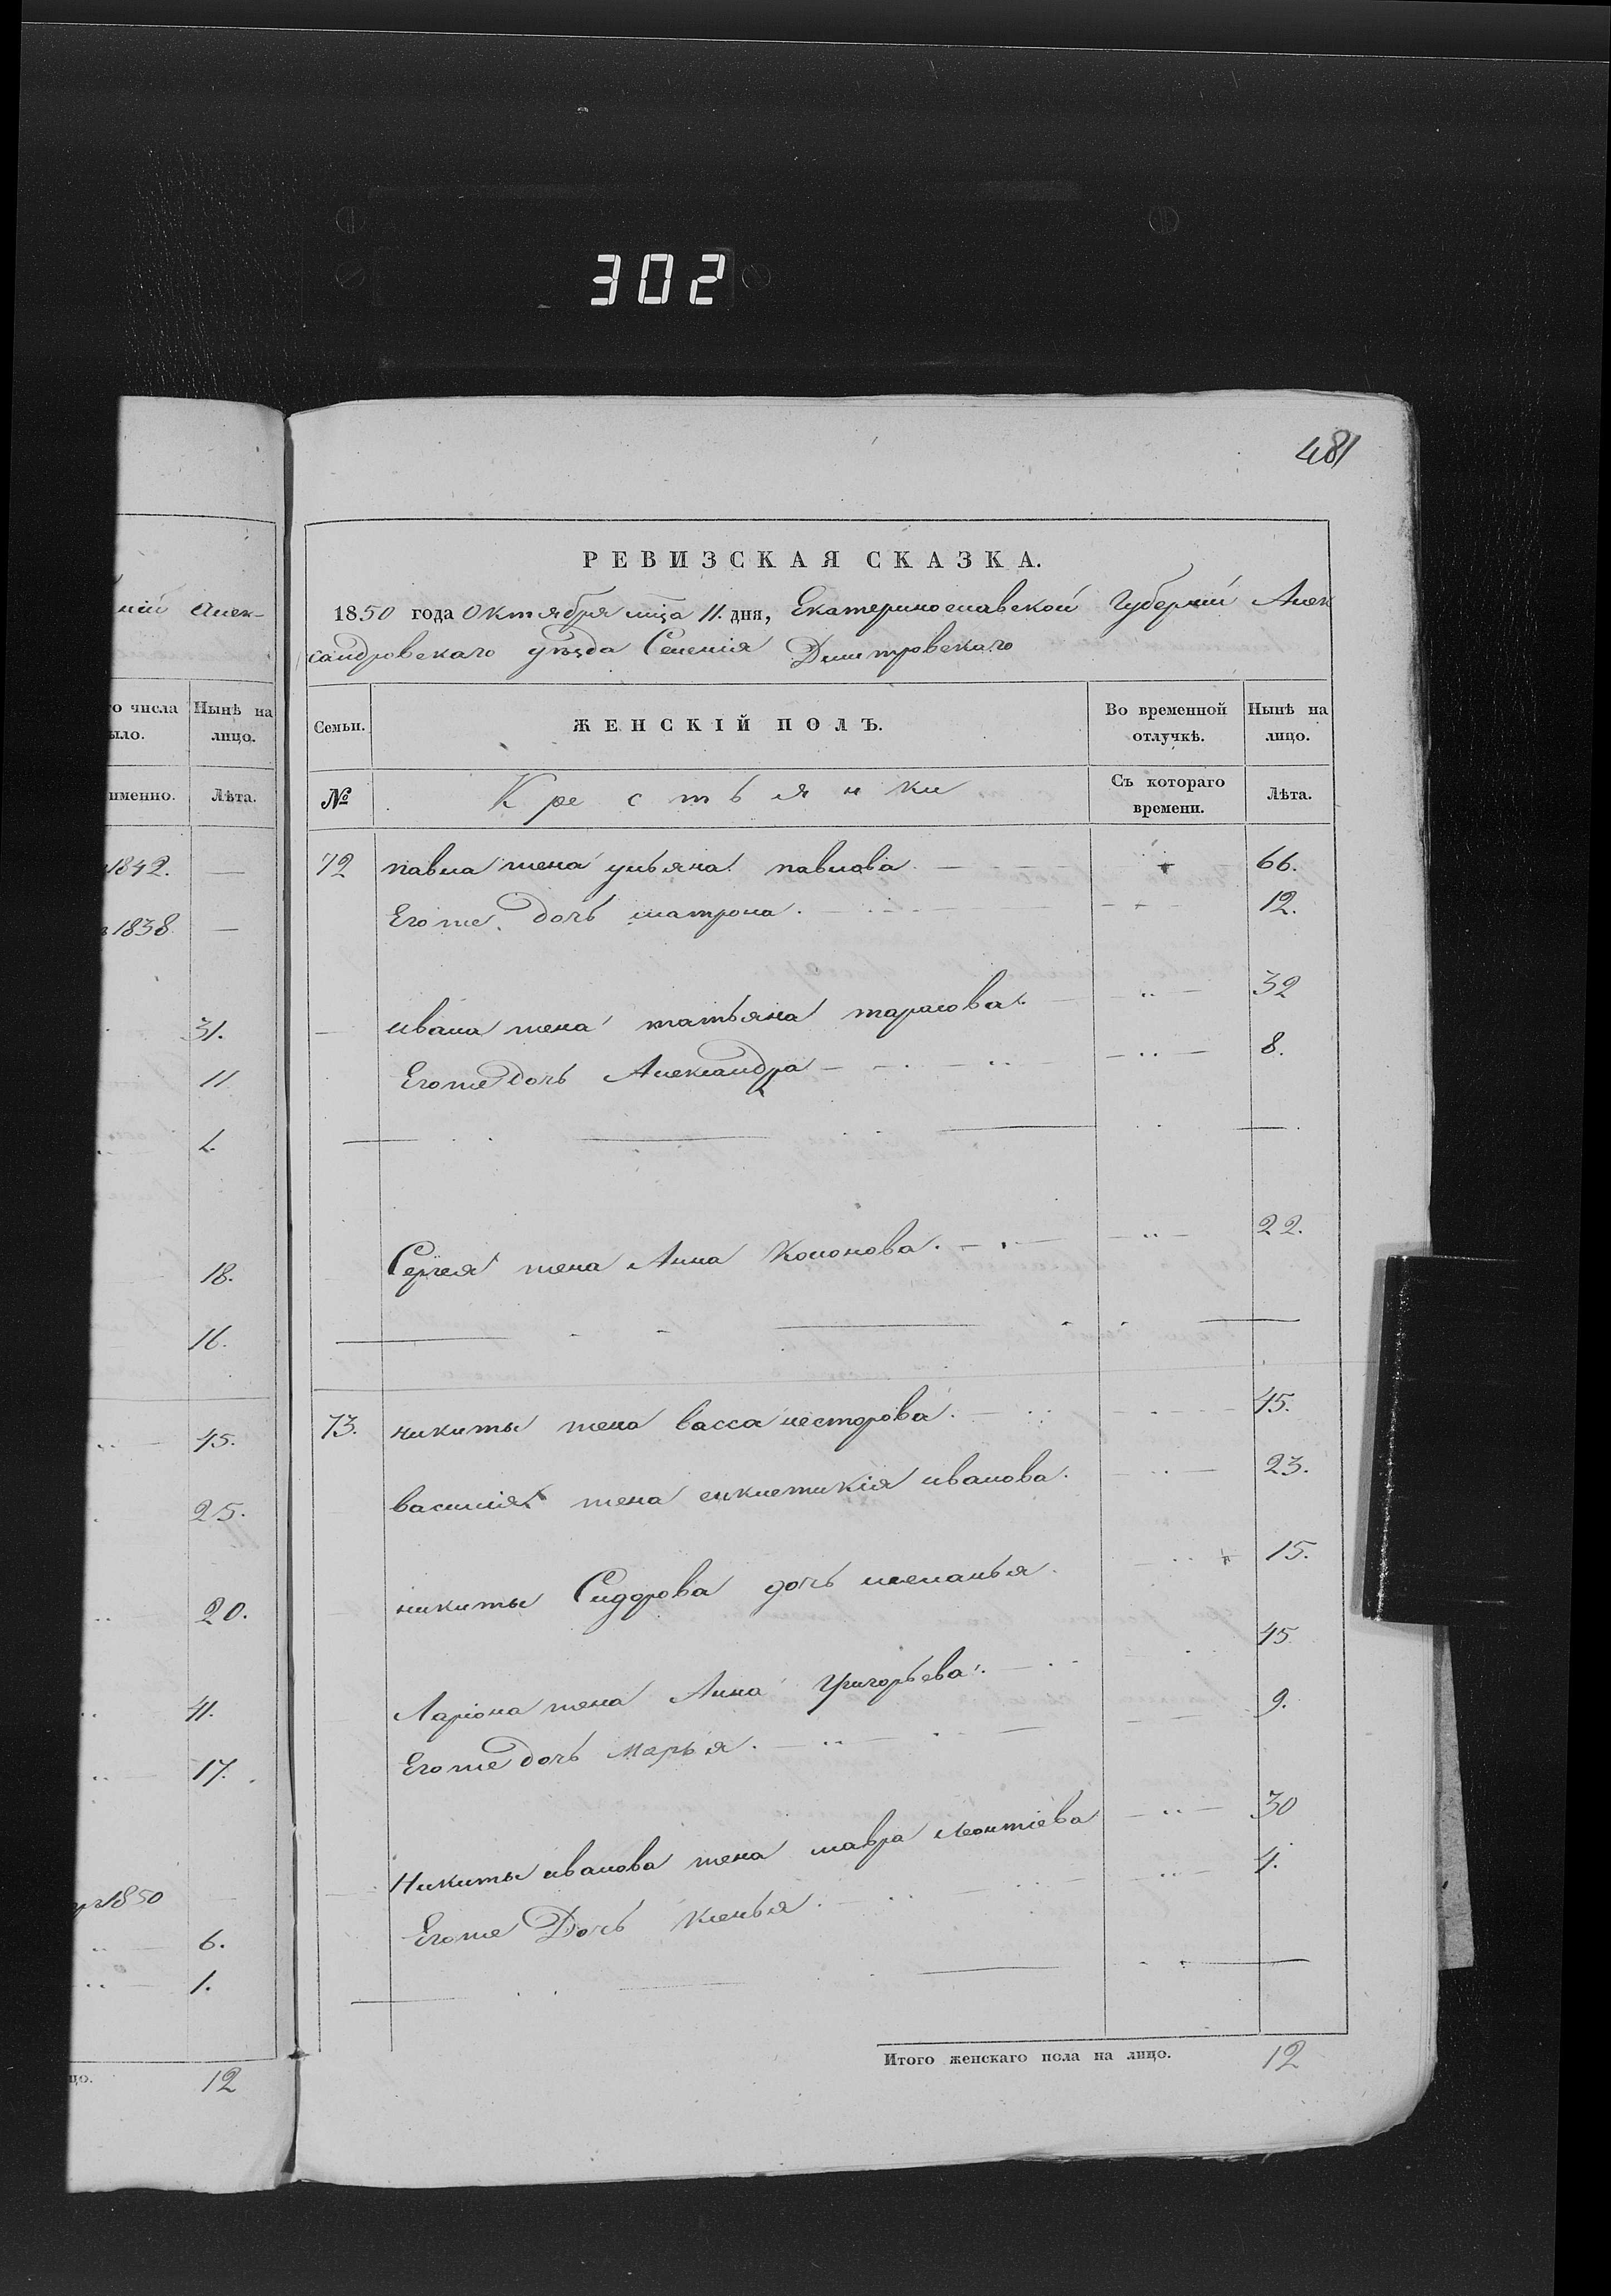 302
481
ній Алек-
го числа
ыло.
Нынѣ на
лицо.
именно.
Лѣта.
1842. —
1838 —
31.
11
1.
18.
16.
45.
25.
20.
41.
17.
1850
6.
1.
цо. 12
РЕВИЗСКАЯ СКАЗКА.
1850 года Октября мца 11. дня, Екатеринославской Губерніи Алек
сандровскаго уѣзда Селенія Дмитровскаго
Семьи.
ЖЕНСКІЙ ПОЛЪ.
Во временной
отлучкѣ.
Нынѣ на
лицо.
№
Крестьянки
Съ котораго
времени.
Лѣта.
72 павла жена ульяна павлова 66.
Егоже дочь матрона. 12.
ивана жена татьяна тарасова. 32
Егоже дочь Александра 8.
Сергея жена Анна Кононова. 22.
73. никиты жена васса несторова. 45.
василия жена синклетикія иванова. 23.
никиты Сидорова дочь меланья. 15.
Ларіона жена Анна Григорьева. 45
Егоже дочь марья. 9.
Никиты иванова жена мавра Леонтіева 30
Егоже Дочь 4.
Итого женскаго пола на лицо. 12